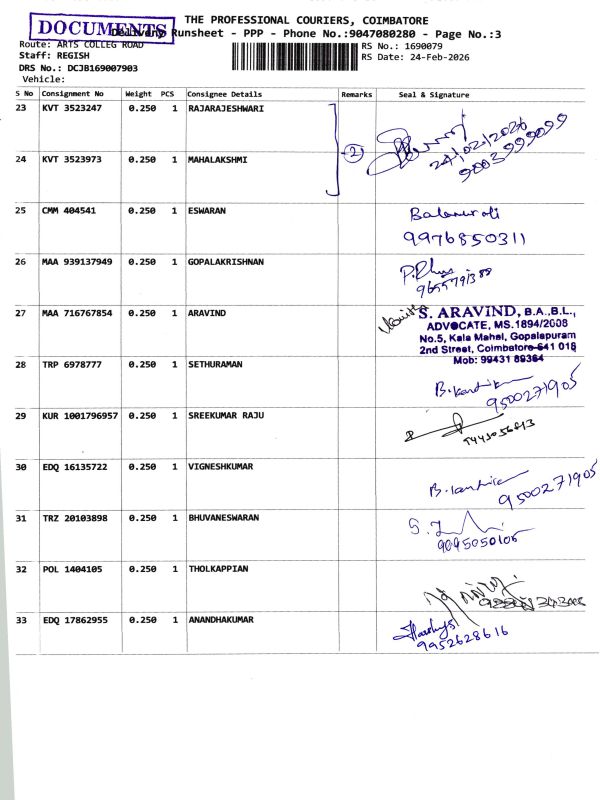 THE PROFESSIONAL COURIERS, COIMBATORE
DOCUMENTS
Delivery Runsheet - PPP - Phone No.:9047080280 - Page No.:3
Route: ARTS COLLEG ROAD
RS No.: 1690079
Staff: REGISH
RS Date: 24-Feb-2026
DRS No.: DCJB169007903
Vehicle:
S No Consignment No Weight PCS Consignee Details Remarks Seal & Signature
23 KVT 3523247 0.250 1 RAJARAJESHWARI
24/02/2026
9003999099
2
24 KVT 3523973 0.250 1 MAHALAKSHMI
25 CMM 404541 0.250 1 ESWARAN
Balamurali
9976850311
26 MAA 939137949 0.250 1 GOPALAKRISHNAN
27 MAA 716767854 0.250 1 ARAVIND
S. ARAVIND, B.A.,B.L.,
ADVOCATE, MS.1894/2008
No.5, Kala Mahal, Gopalapuram
2nd Street, Coimbatore-641 018
Mob: 99431 89364
28 TRP 6978777 0.250 1 SETHURAMAN
B. Karthik
9500271905
29 KUR 1001796957 0.250 1 SREEKUMAR RAJU
30 EDQ 16135722 0.250 1 VIGNESHKUMAR
9500271905
31 TRZ 20103898 0.250 1 BHUVANESWARAN
9095050105
32 POL 1404105 0.250 1 THOLKAPPIAN
33 EDQ 17862955 0.250 1 ANANDHAKUMAR
9952628616